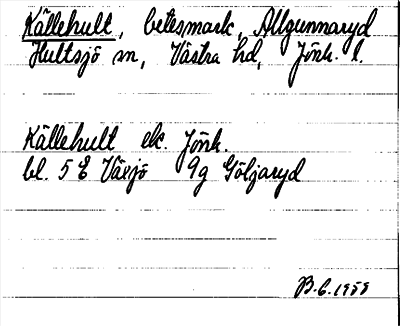 Källehult, betesmark, Allgunnaryd
Hultsjö sn, Västra hd, Jönk. l.
Källehult ek. Jönk.
bl. 5 E Växjö 9g Göljaryd
B.G. 1959